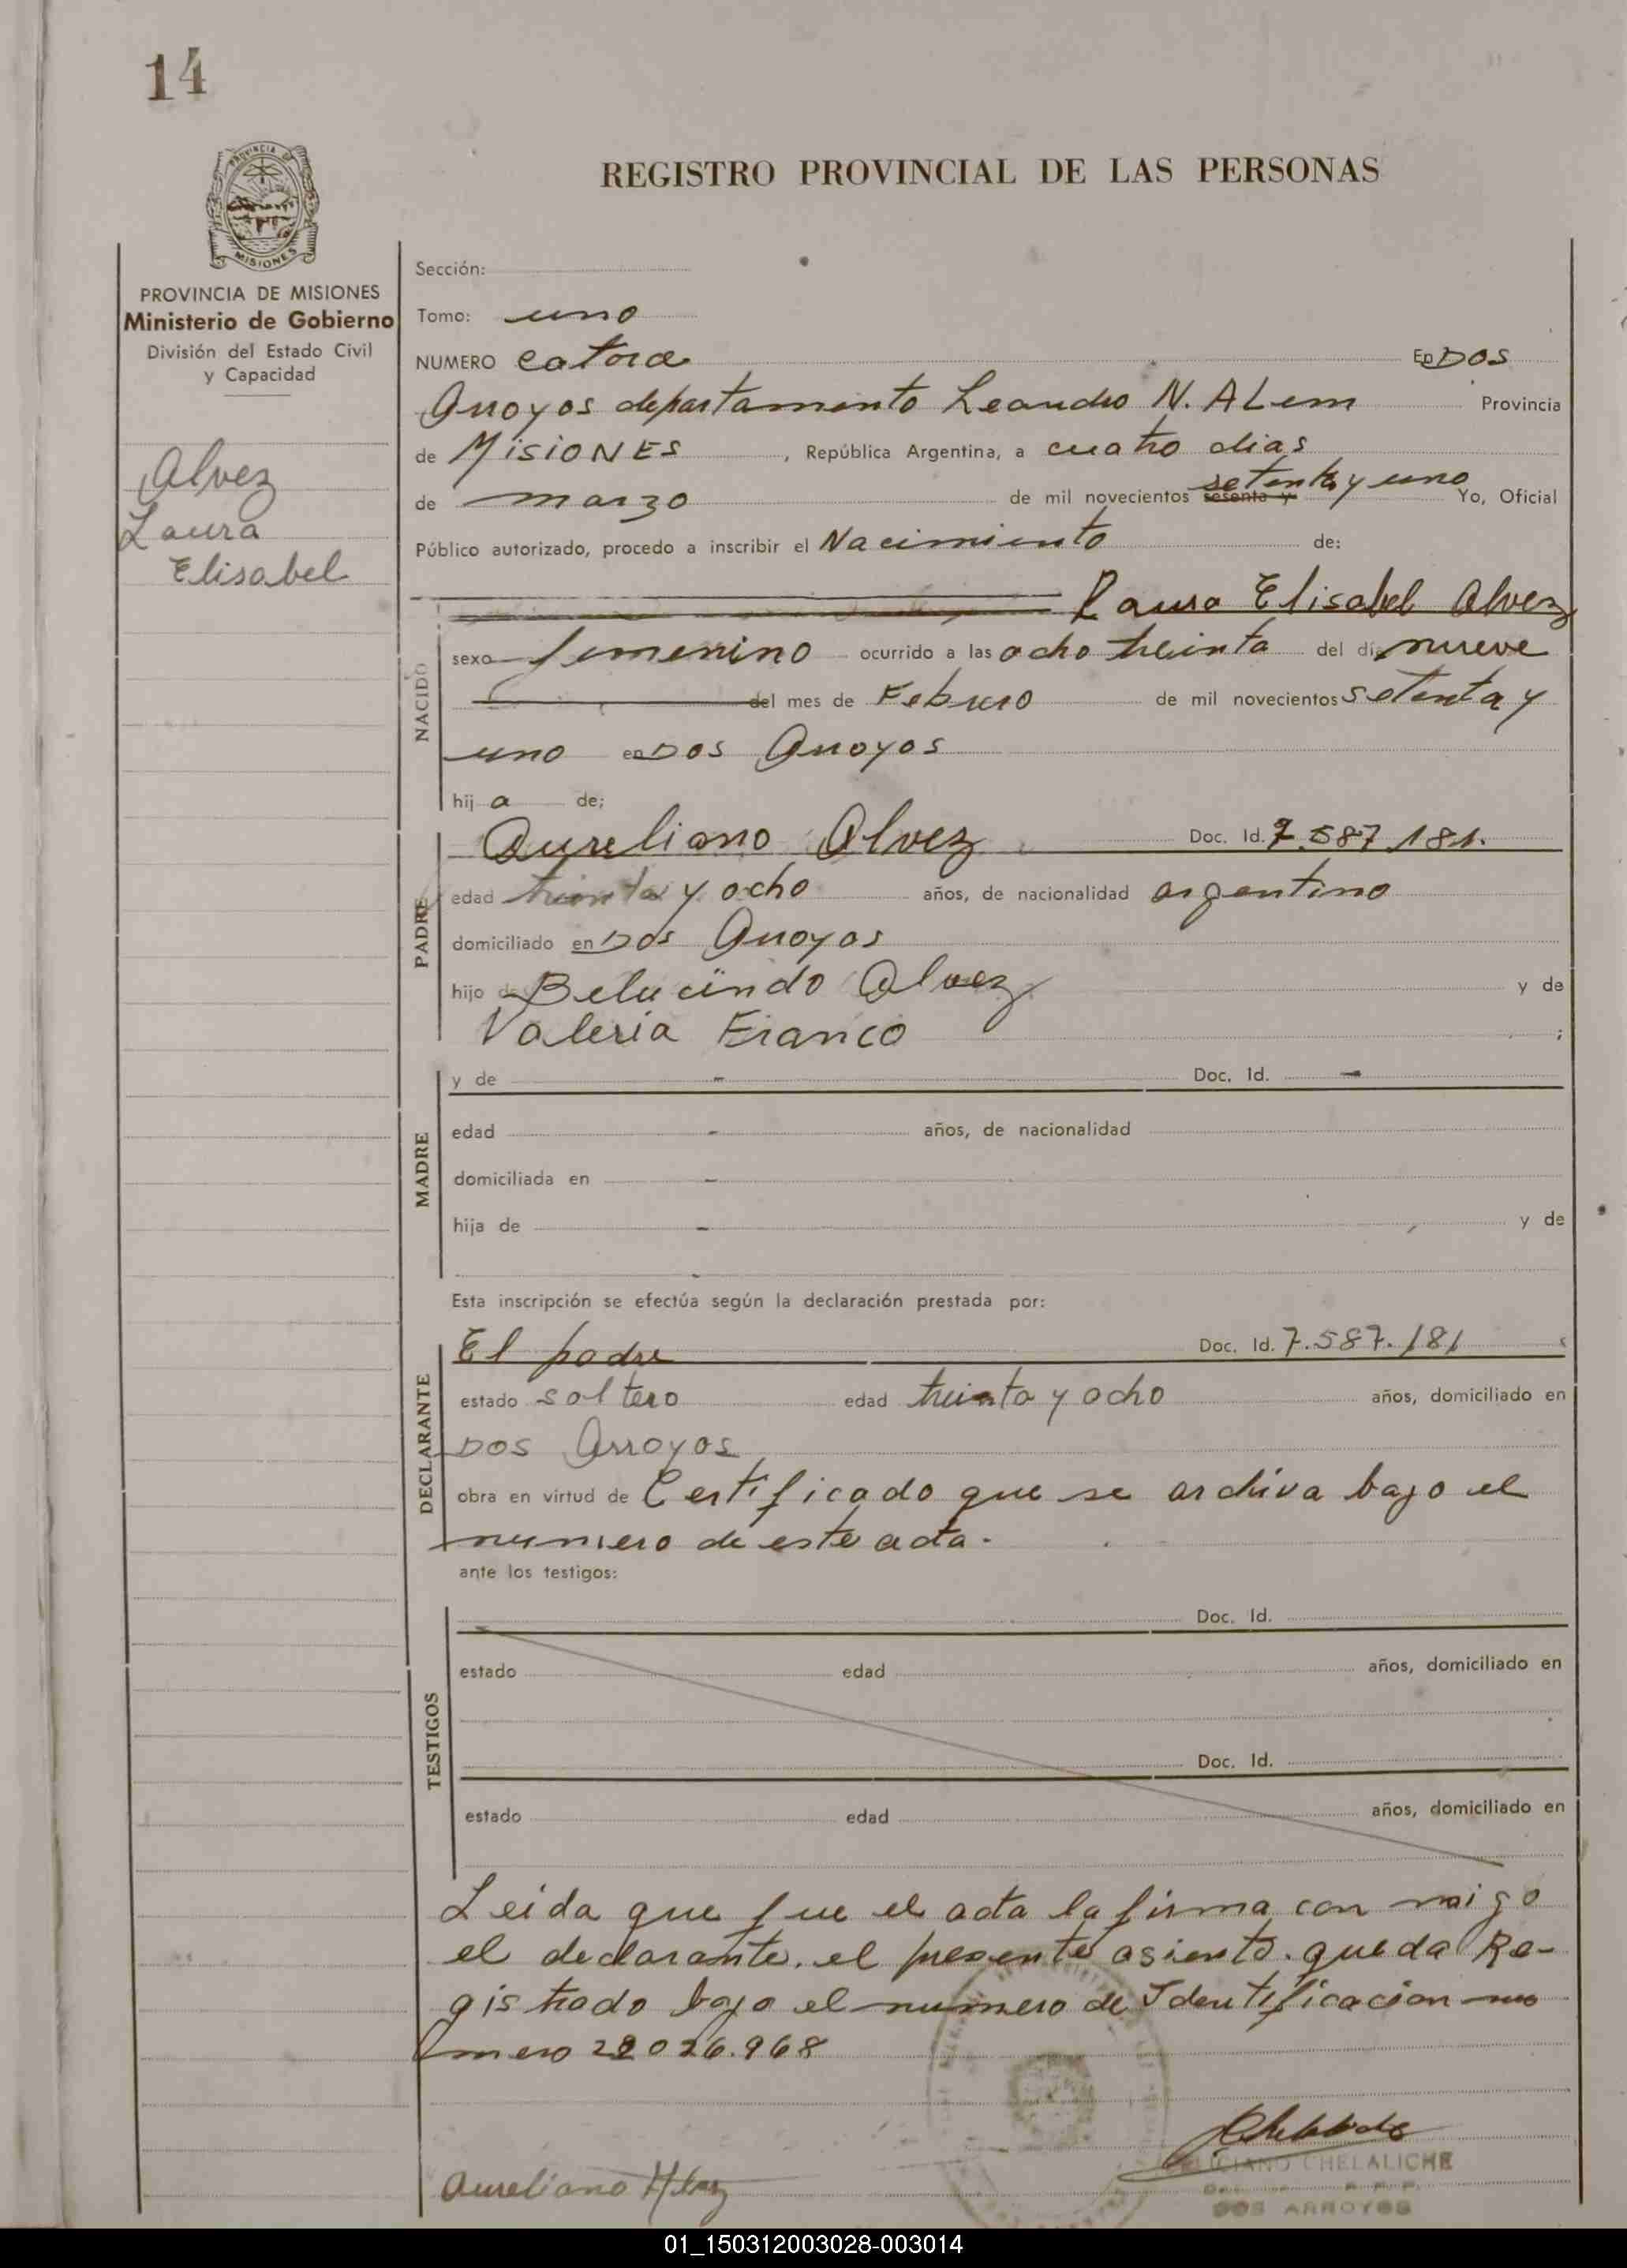 14
PROVINCIA DE
MISIONES
REGISTRO PROVINCIAL DE LAS PERSONAS
PROVINCIA DE MISIONES
Ministerio de Gobierno
División del Estado Civil
y Capacidad
Alvez
Laura
Elisabel
Sección:
Tomo: uno
NUMERO catorce En Dos
Arroyos departamento Leandro N. ALem Provincia
de MisiONES , República Argentina, a cuatro dias
de marzo de mil novecientos sesenta y setenta y uno Yo, Oficial
Público autorizado, procedo a inscribir el Nacimiento de:
Laura Elisabel Alvez
NACIDO
sexo femenino ocurrido a las ocho treinta del día nueve
del mes de Febrero de mil novecientos setenta y
uno en Dos Arroyos
hij a de;
PADRE
Aureliano Alvez Doc. Id. 7.587.181.
edad treinta y ocho años, de nacionalidad argentino
domiciliado en Dos Arroyos
hijo de Alvez y de
Valeria Franco ;
MADRE
y de - Doc. Id. -
edad - años, de nacionalidad
domiciliada en -
hija de - y de
-
Esta inscripción se efectúa según la declaración prestada por:
DECLARANTE
El padre Doc. Id. 7.587.181
estado soltero edad treinta y ocho años, domiciliado en
Dos Arroyos
obra en virtud de Certificado que se archiva bajo el
numero de este acta.
ante los testigos:
TESTIGOS
Doc. Id.
estado edad años, domiciliado en
Doc. Id.
estado edad años, domiciliado en
Leida que fue el acta la firma con migo
el declarante. el presente asiento. queda Re-
gistrado bajo el numero de Identificacion nu
mero 22026.968
Aureliano Alvez
CHELALICHE
DOS ARROYOS
01_150312003028-003014